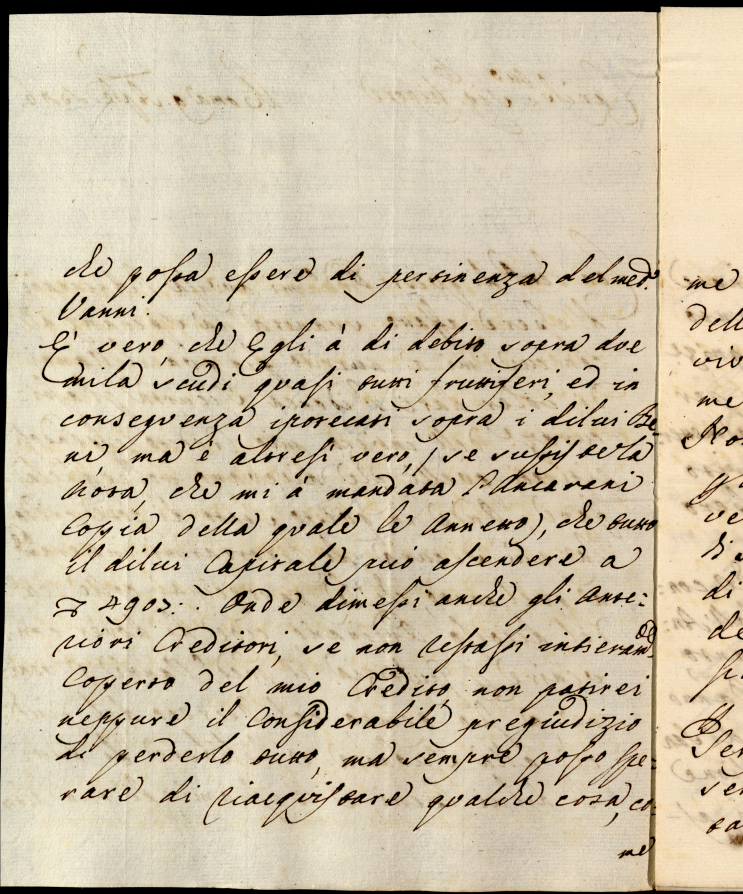 che possa essere di pertinenza del med.o
Vanni.
È vero, che Egli à di debito sopra due
mila scudi quasi tutti fruttiferi, ed in
conseguenza ipotecati sopra i dilui Be-
ni, ma è altresì vero, (se sussiste la
Nota, che mi à mandata l'Ancarani
Coppia della quale le Annetto), che tutto
il dilui Capitale può ascendere a
490 Onde dimessi anche gli Ante:
riori Creditori, se non restassi intieram.te
Coperto del mio Credito, non patirei
neppure il Considerabile pregiudizio
di perderlo tutto, ma sempre posso spe:
rare di riacquistare qualche cosa, co-
me
me
dell
viv
me
No
ve
di
de
Ser
ser
ta